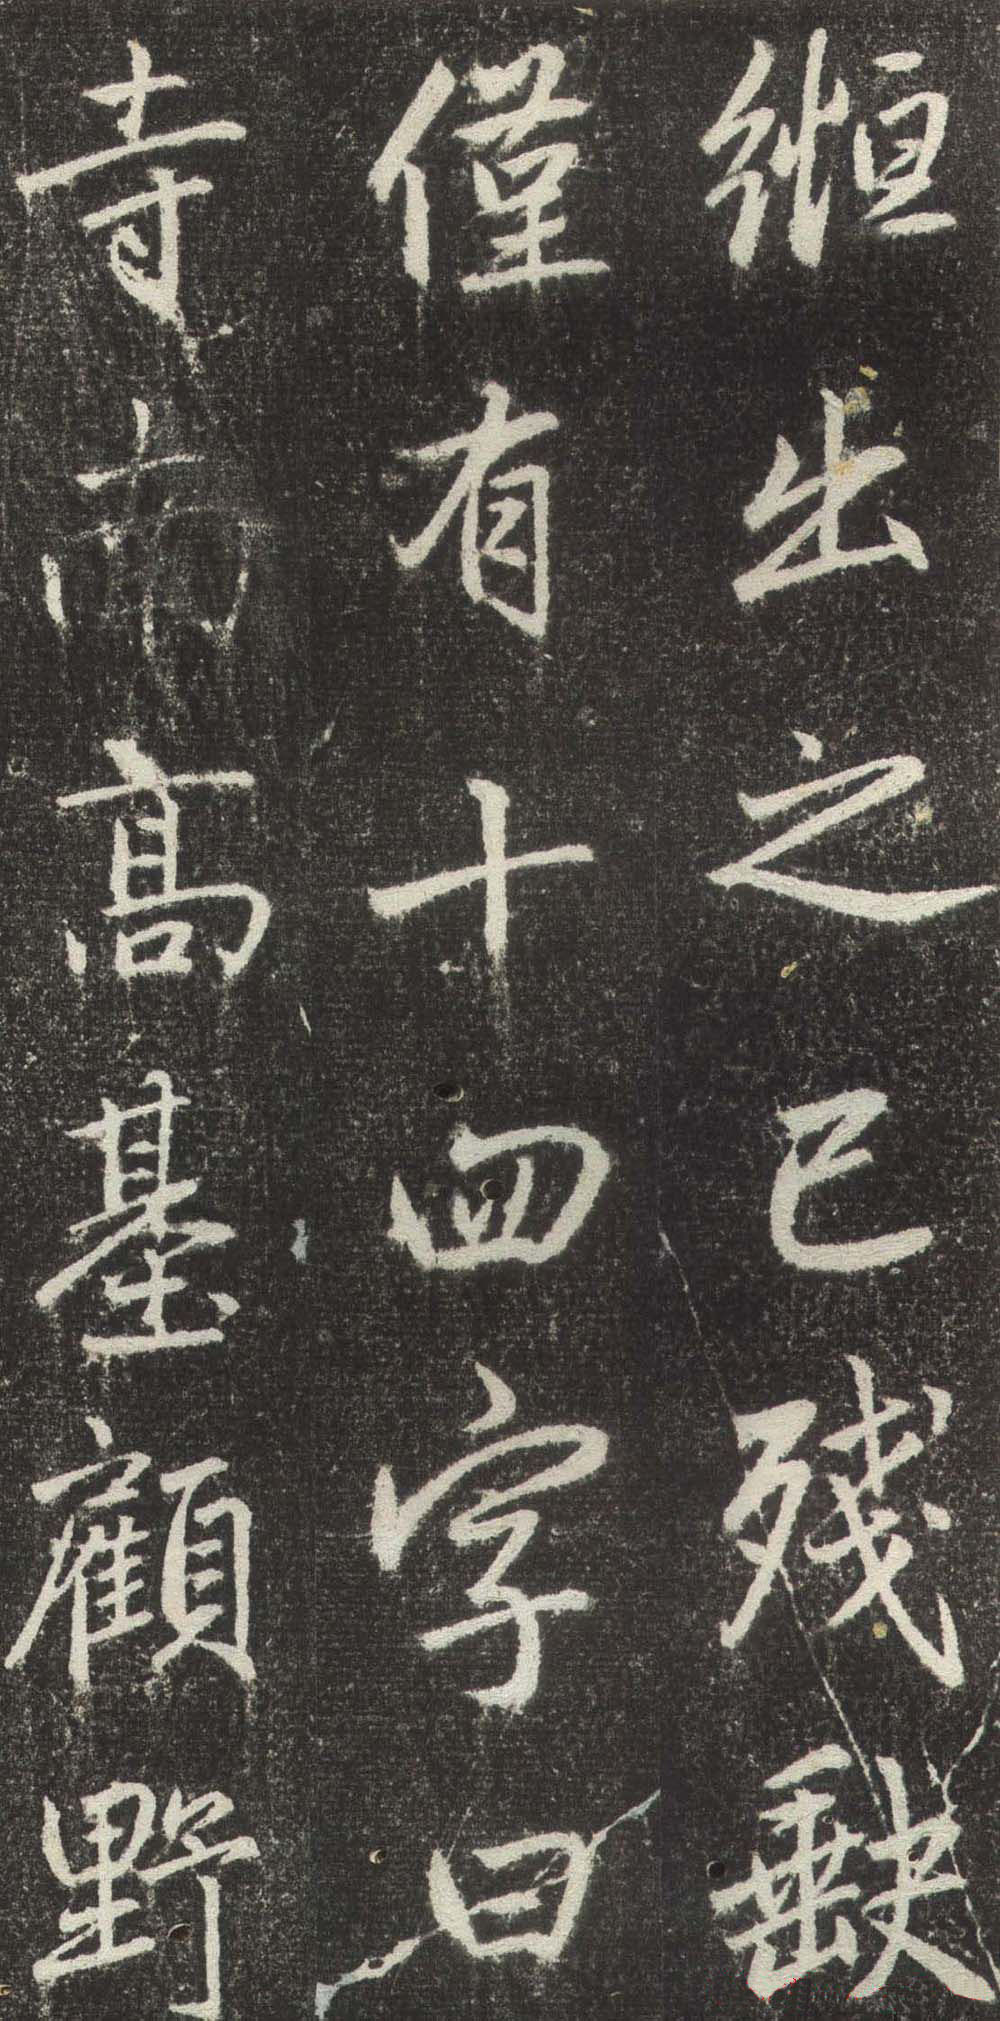 縆出之已殘缺
僅有十四字曰
寺南高基顧野